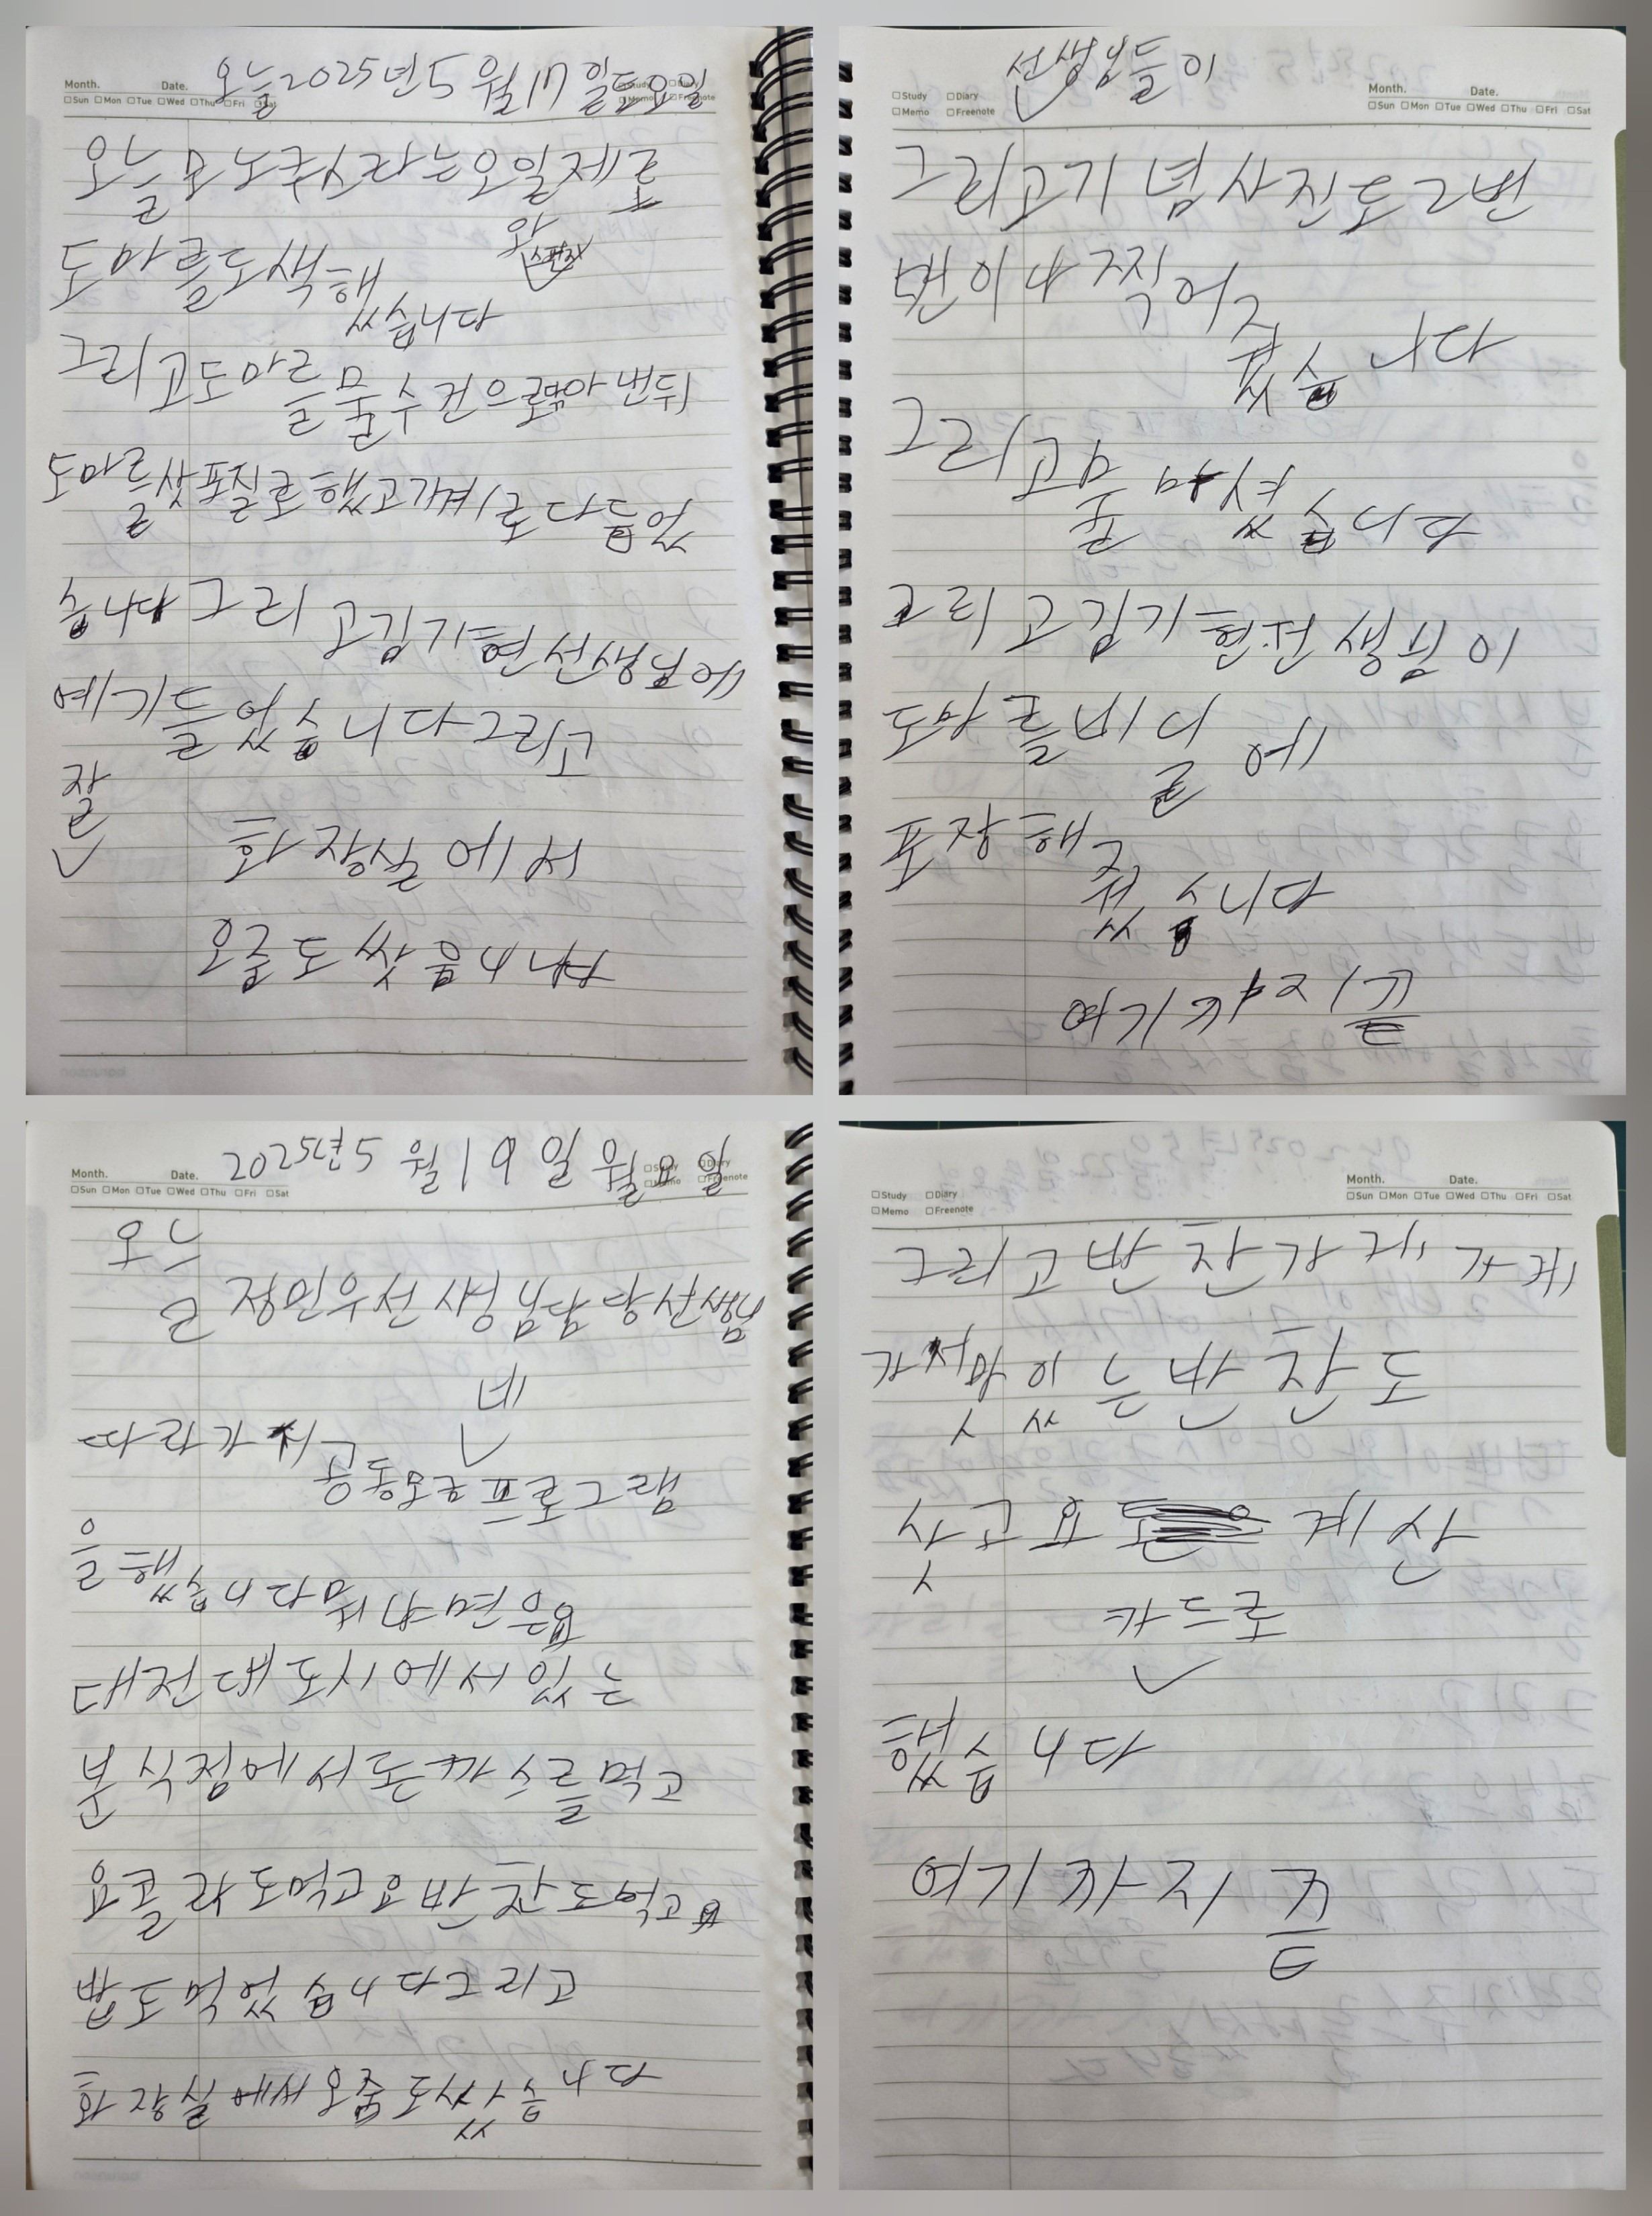 Month. Date. 오늘2025년5월17일토요일
□Sun □Mon □Tue □Wed □Thu □Fri □Sat □Study □Diary
□Memo □Freenote
오늘은 라는오일제로
와
도마를도색해
씁습니다
그리고도마를물수건으로닦아번뒤
도마를삿포질로했고기계로다듬었
습니다그리고김기현선생님에
예기들었습니다그리고
잘
화장실에서
오줌도쌋음니다
선생님들이
□Study □Diary Month. Date.
□Memo □Freenote □Sun □Mon □Tue □Wed □Thu □Fri □Sat
그리고기념사진도2번
번이나찍어주
셨습니다
그리고물마셨습니다
그리고김기현선생님이
도마를비닐에
포장해주
셨습니다
여기까지끝
2025년5월19일월요일
Month. Date. □Study □Diary
□Sun □Mon □Tue □Wed □Thu □Fri □Sat □Memo □Freenote
오늘
정민우선생님담당선생님
네
따라가서공동모로프로그램
을했습니다뭐냐면은요
대전대도시에서있는
분식점에서돈까스를먹고
요콜라도먹고요반찬도먹고요
밥도먹었습니다그리고
화장실에써오줌도쌌습니다
Month. Date.
□Study □Diary □Sun □Mon □Tue □Wed □Thu □Fri □Sat
□Memo □Freenote
그리고반찬가게가게
가서맛있는반찬도
삿고요 계산
카드로
했습니다
여기까지끝